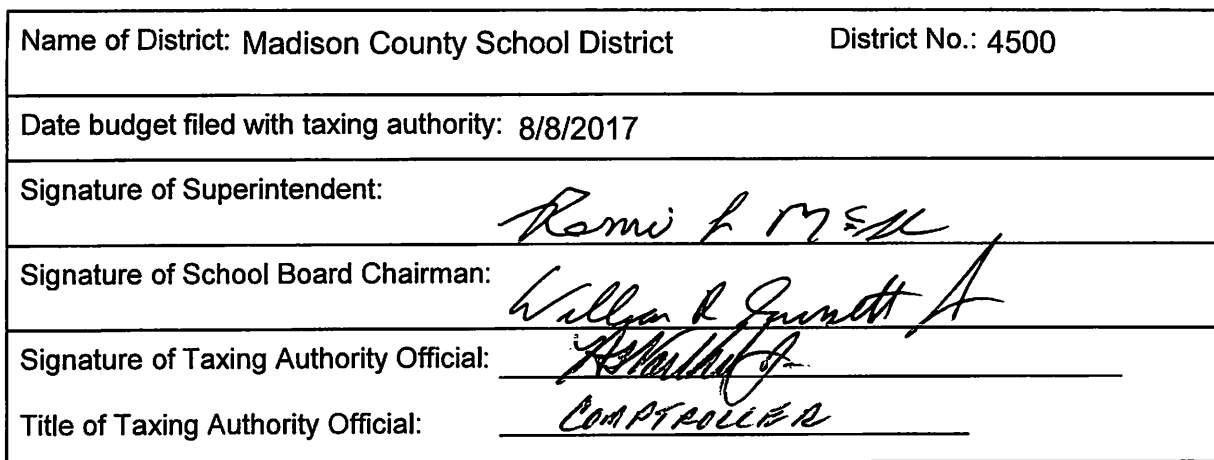 Name of District: Madison County School District District No.: 4500
Date budget filed with taxing authority: 8/8/2017
Signature of Superintendent:
Signature of School Board Chairman: William R
Signature of Taxing Authority Official:
Title of Taxing Authority Official: COMPTROLLER